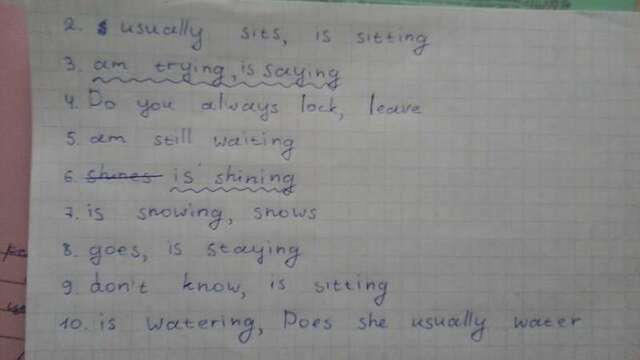 2. usually sits, is sitting
3. am trying, is saying
4. Do you always lock, leave
5. am still waiting
6. shines is shining
7. is snowing, snows
8. goes, is staying
9. don't know, is sitting
10. is watering, Does she usually water